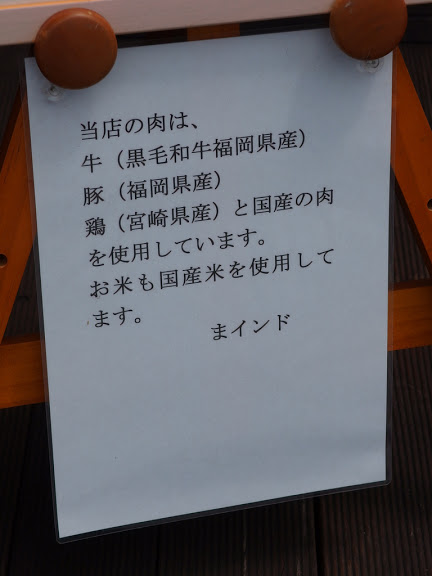 当店の肉は、
牛（黒毛和牛福岡県産）
豚（福岡県産）
鶏（宮崎県産）と国産の肉
を使用しています。
お米も国産米を使用して
ます。
まインド